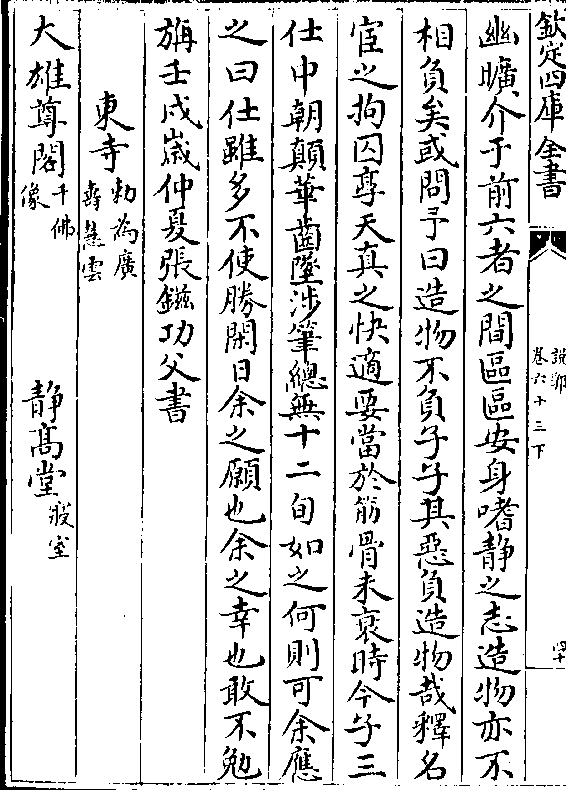 欽定四庫全書
說郛
卷六十三下
四十
幽曠介于前六者之間區區安身嗜静之志造物亦不
相負矣或問予曰造物不負子子其惡負造物哉釋名
宦之拘囚享天真之快適要當於筋骨未衰時今子三
仕中朝顛華齒墮涉筆總無十二旬如之何則可余應
之曰仕雖多不使勝閑日余之願也余之幸也敢不勉
旃壬戌嵗仲夏張鎡功父書
東寺勅為廣夀慧雲
大雄尊閣千佛像 静髙堂寢室